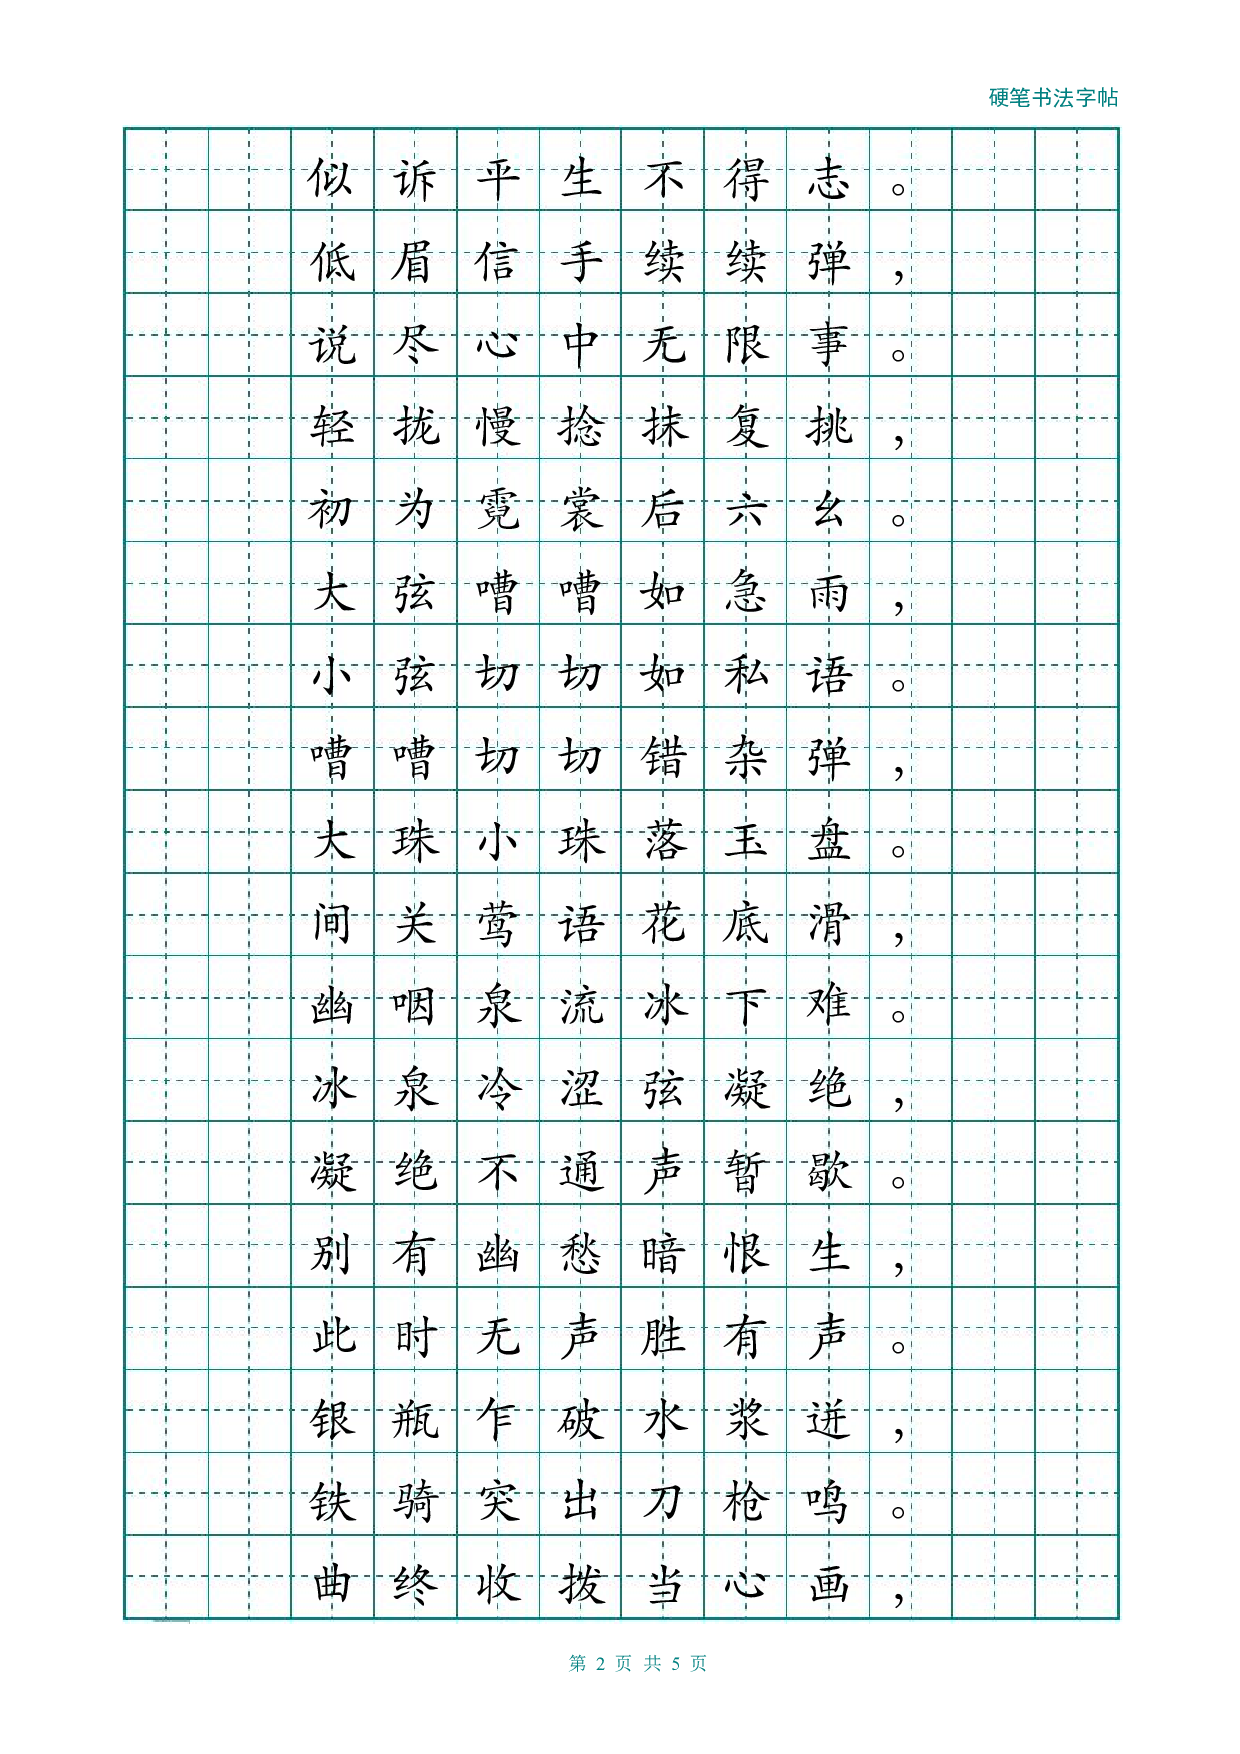 硬笔书法字帖
似诉平生不得志。
低眉信手续续弹，
说尽心中无限事。
轻拢慢捻抹复挑，
初为霓裳后六幺。
大弦嘈嘈如急雨，
小弦切切如私语。
嘈嘈切切错杂弹，
大珠小珠落玉盘。
间关莺语花底滑，
幽咽泉流冰下难。
冰泉冷涩弦凝绝，
凝绝不通声暂歇。
别有幽愁暗恨生，
此时无声胜有声。
银瓶乍破水浆迸，
铁骑突出刀枪鸣。
曲终收拨当心画，
第 2 页 共 5 页